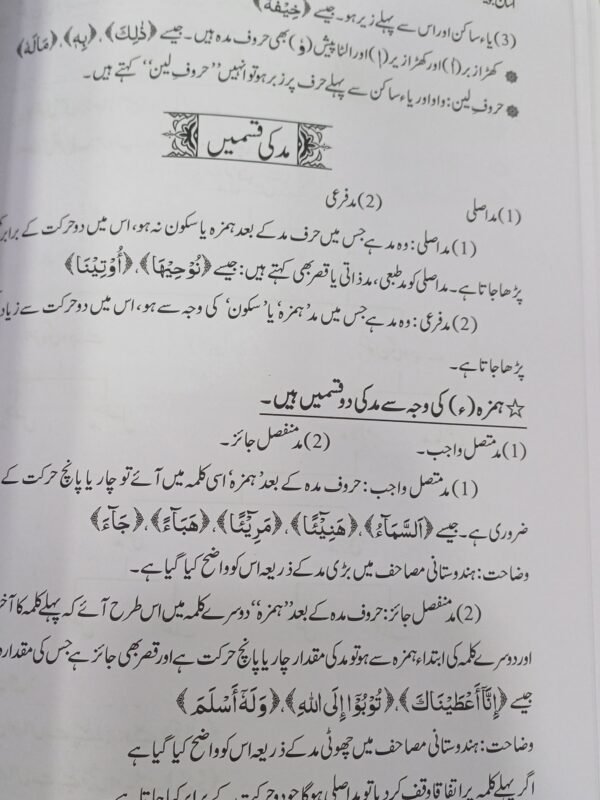 (3) یاء ساکن اور اس سے پہلے زیر ہو۔ جیسے ﴿خِيْفَةً﴾
کھڑا زبر (ا) اور کھڑا زیر (ا) اور الٹا پیش (و) بھی حروف مدہ ہیں۔ جیسے ﴿ذٰلِكَ﴾، ﴿بِهٖ﴾، ﴿مَالَهٗ﴾
حروف لین: واو اور یاء ساکن سے پہلے حرف پر زبر ہو تو انہیں ”حروف لین“ کہتے ہیں۔
مد کی قسمیں
(1) مد اصلی (2) مد فرعی
(1) مد اصلی: وہ مد ہے جس میں حرف مد کے بعد ہمزہ یا سکون نہ ہو، اس میں دو حرکت کے برابر
پڑھا جاتا ہے۔ مد اصلی کو مد طبعی، مد ذاتی یا قصر بھی کہتے ہیں: جیسے ﴿نُوْحِيْهَا﴾، ﴿أُوْتِيْنَا﴾
(2) مد فرعی: وہ مد ہے جس میں مد ’ہمزہ‘ یا ’سکون‘ کی وجہ سے ہو، اس میں دو حرکت سے زیاد
پڑھا جاتا ہے۔
☆ ہمزہ (ء) کی وجہ سے مد کی دو قسمیں ہیں۔
(1) مد متصل واجب۔ (2) مد منفصل جائز۔
(1) مد متصل واجب: حروف مدہ کے بعد ’ہمزہ‘ اسی کلمہ میں آئے تو چار یا پانچ حرکت کے
ضروری ہے۔ جیسے ﴿اَلسَّمَآءُ﴾، ﴿هَنِيْٓئًا﴾، ﴿مَرِيْٓئًا﴾، ﴿هَبَآءً﴾، ﴿جَآءَ﴾
وضاحت: ہندوستانی مصاحف میں بڑی مد کے ذریعہ اس کو واضح کیا گیا ہے۔
(2) مد منفصل جائز: حروف مدہ کے بعد ”ہمزہ“ دوسرے کلمہ میں اس طرح آئے کہ پہلے کلمہ کا آخر
اور دوسرے کلمہ کی ابتداء ہمزہ سے ہو تو مد کی مقدار چار یا پانچ حرکت ہے اور قصر بھی جائز ہے جس کی مقدار دو
جیسے ﴿إِنَّآ أَعْطَيْنَاكَ﴾، ﴿تُوْبُوْٓا إِلَى اللهِ﴾، ﴿وَلَهٗٓ أَسْلَمَ﴾
وضاحت: ہندوستانی مصاحف میں چھوٹی مد کے ذریعہ اس کو واضح کیا گیا ہے
اگر پہلے کلمہ پر اتفاقا وقف کر دیا تو مد اصلی ہوگا جو دو حرکت کے برابر کیا جاتا ہے